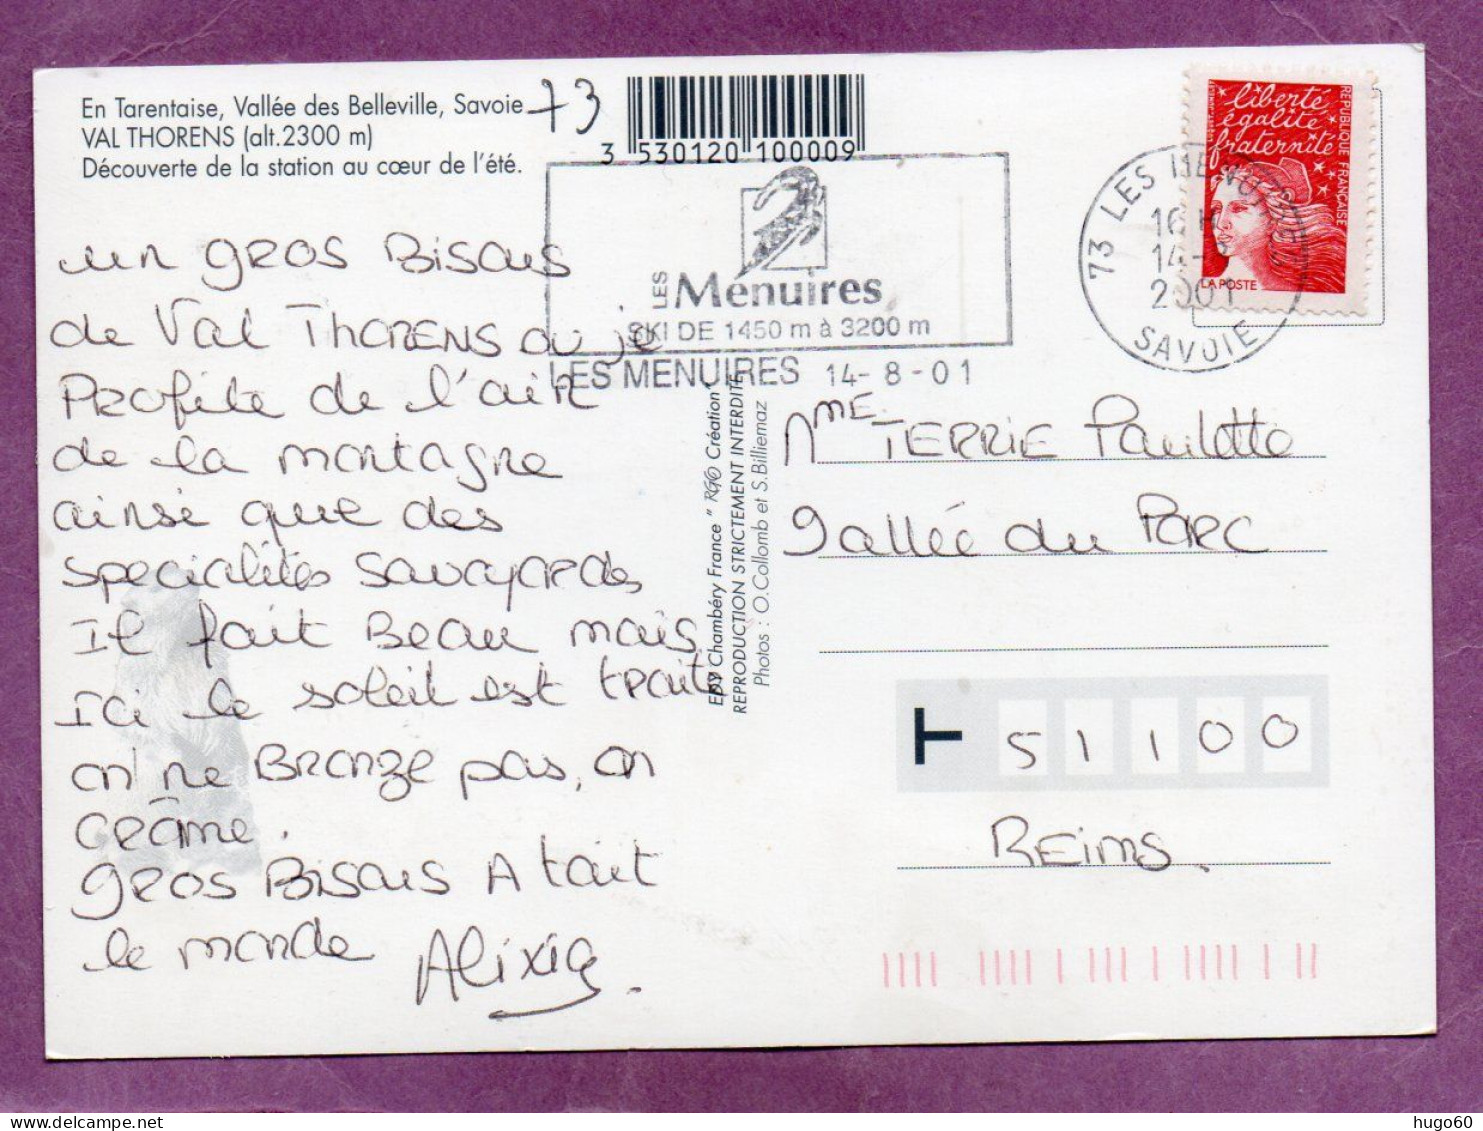 En Tarentaise, Vallée des Belleville, Savoie
VAL THORENS (alt.2300 m)
Découverte de la station au cœur de l'été.
73
3 530120 100009
LES Menuires
SKI DE 1450 m à 3200 m
LES MENUIRES 14-8-01
73 LES MENUIRES
16 H
14-8
2001
SAVOIE
liberté
égalité
fraternité
RÉPUBLIQUE FRANÇAISE
LA POSTE
un gros Bisous
de Val THORENS ou je
Profite de l'air
de la montagne
ainsi que des
specialités savoyardes
Il fait Beau mais
Ici le soleil est traits
on ne BRONZE pas, on
crâme.
gros Bisous A tout
le monde Alixia.
EDY Chambéry France " RGO Création "
REPRODUCTION STRICTEMENT INTERDITE
Photos : O.Collomb et S.Billiemaz
Mme TERRIE Paulette
9 allée du PARC
51100
REims.
hugo60